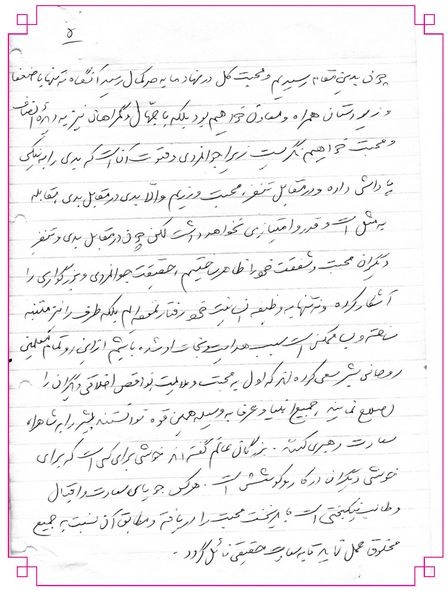 ۷
چون بدین مقام رسیدیم و محبت کل در نهاد ما به حد کمال رسید آنگاه نه تنها با ضعفا
و زیردستان همراه و معاون خواهیم بود بلکه با جهال و گمراهان نیز به دیده انصاف
و محبت خواهیم نگریست زیرا جوانمردی و فتوت آنست که بدی را به نیکی
پاداش داده و در مقابل تنفر، محبت ورزیم والا بدی در مقابل بدی مقابله
به مثل است و قدر و امتیازی نخواهد داشت لکن چون در مقابل بدی و تنفر
دیگران محبت و شفقت خود را ظاهر ساختیم، حقیقت جوانمردی و بزرگواری را
آشکار کرده و نه تنها به وظیفه انسانیت خود رفتار نموده ایم بلکه طرف را نیز متنبه
ساخته و بسا ممکن است سبب هدایت و نجات او شده باشیم از این رو تمام معلمین
روحانی بشر سعی کرده اند که اول به محبت و ملایمت نواقص اخلاقی دیگران را
اصلاح نمایند، جمیع انبیا و عرفا به وسیله همین قوه توانستند بشر را به شاهراه
سعادت رهبری کنند. بزرگان عالم گفته اند خوشی برای کسی است که برای
خوشی دیگران در کار و کوشش است. هر کس جویای سعادت و اقبال
و طالب نیکبختی است باید محبت را دریافته و مطابق آن نسبت به جمیع
مخلوق عمل نماید تا به سعادت حقیقی نائل گردد.